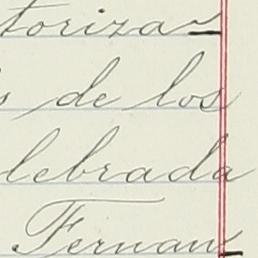 toriza-
s de los
lebrada
Fernan-